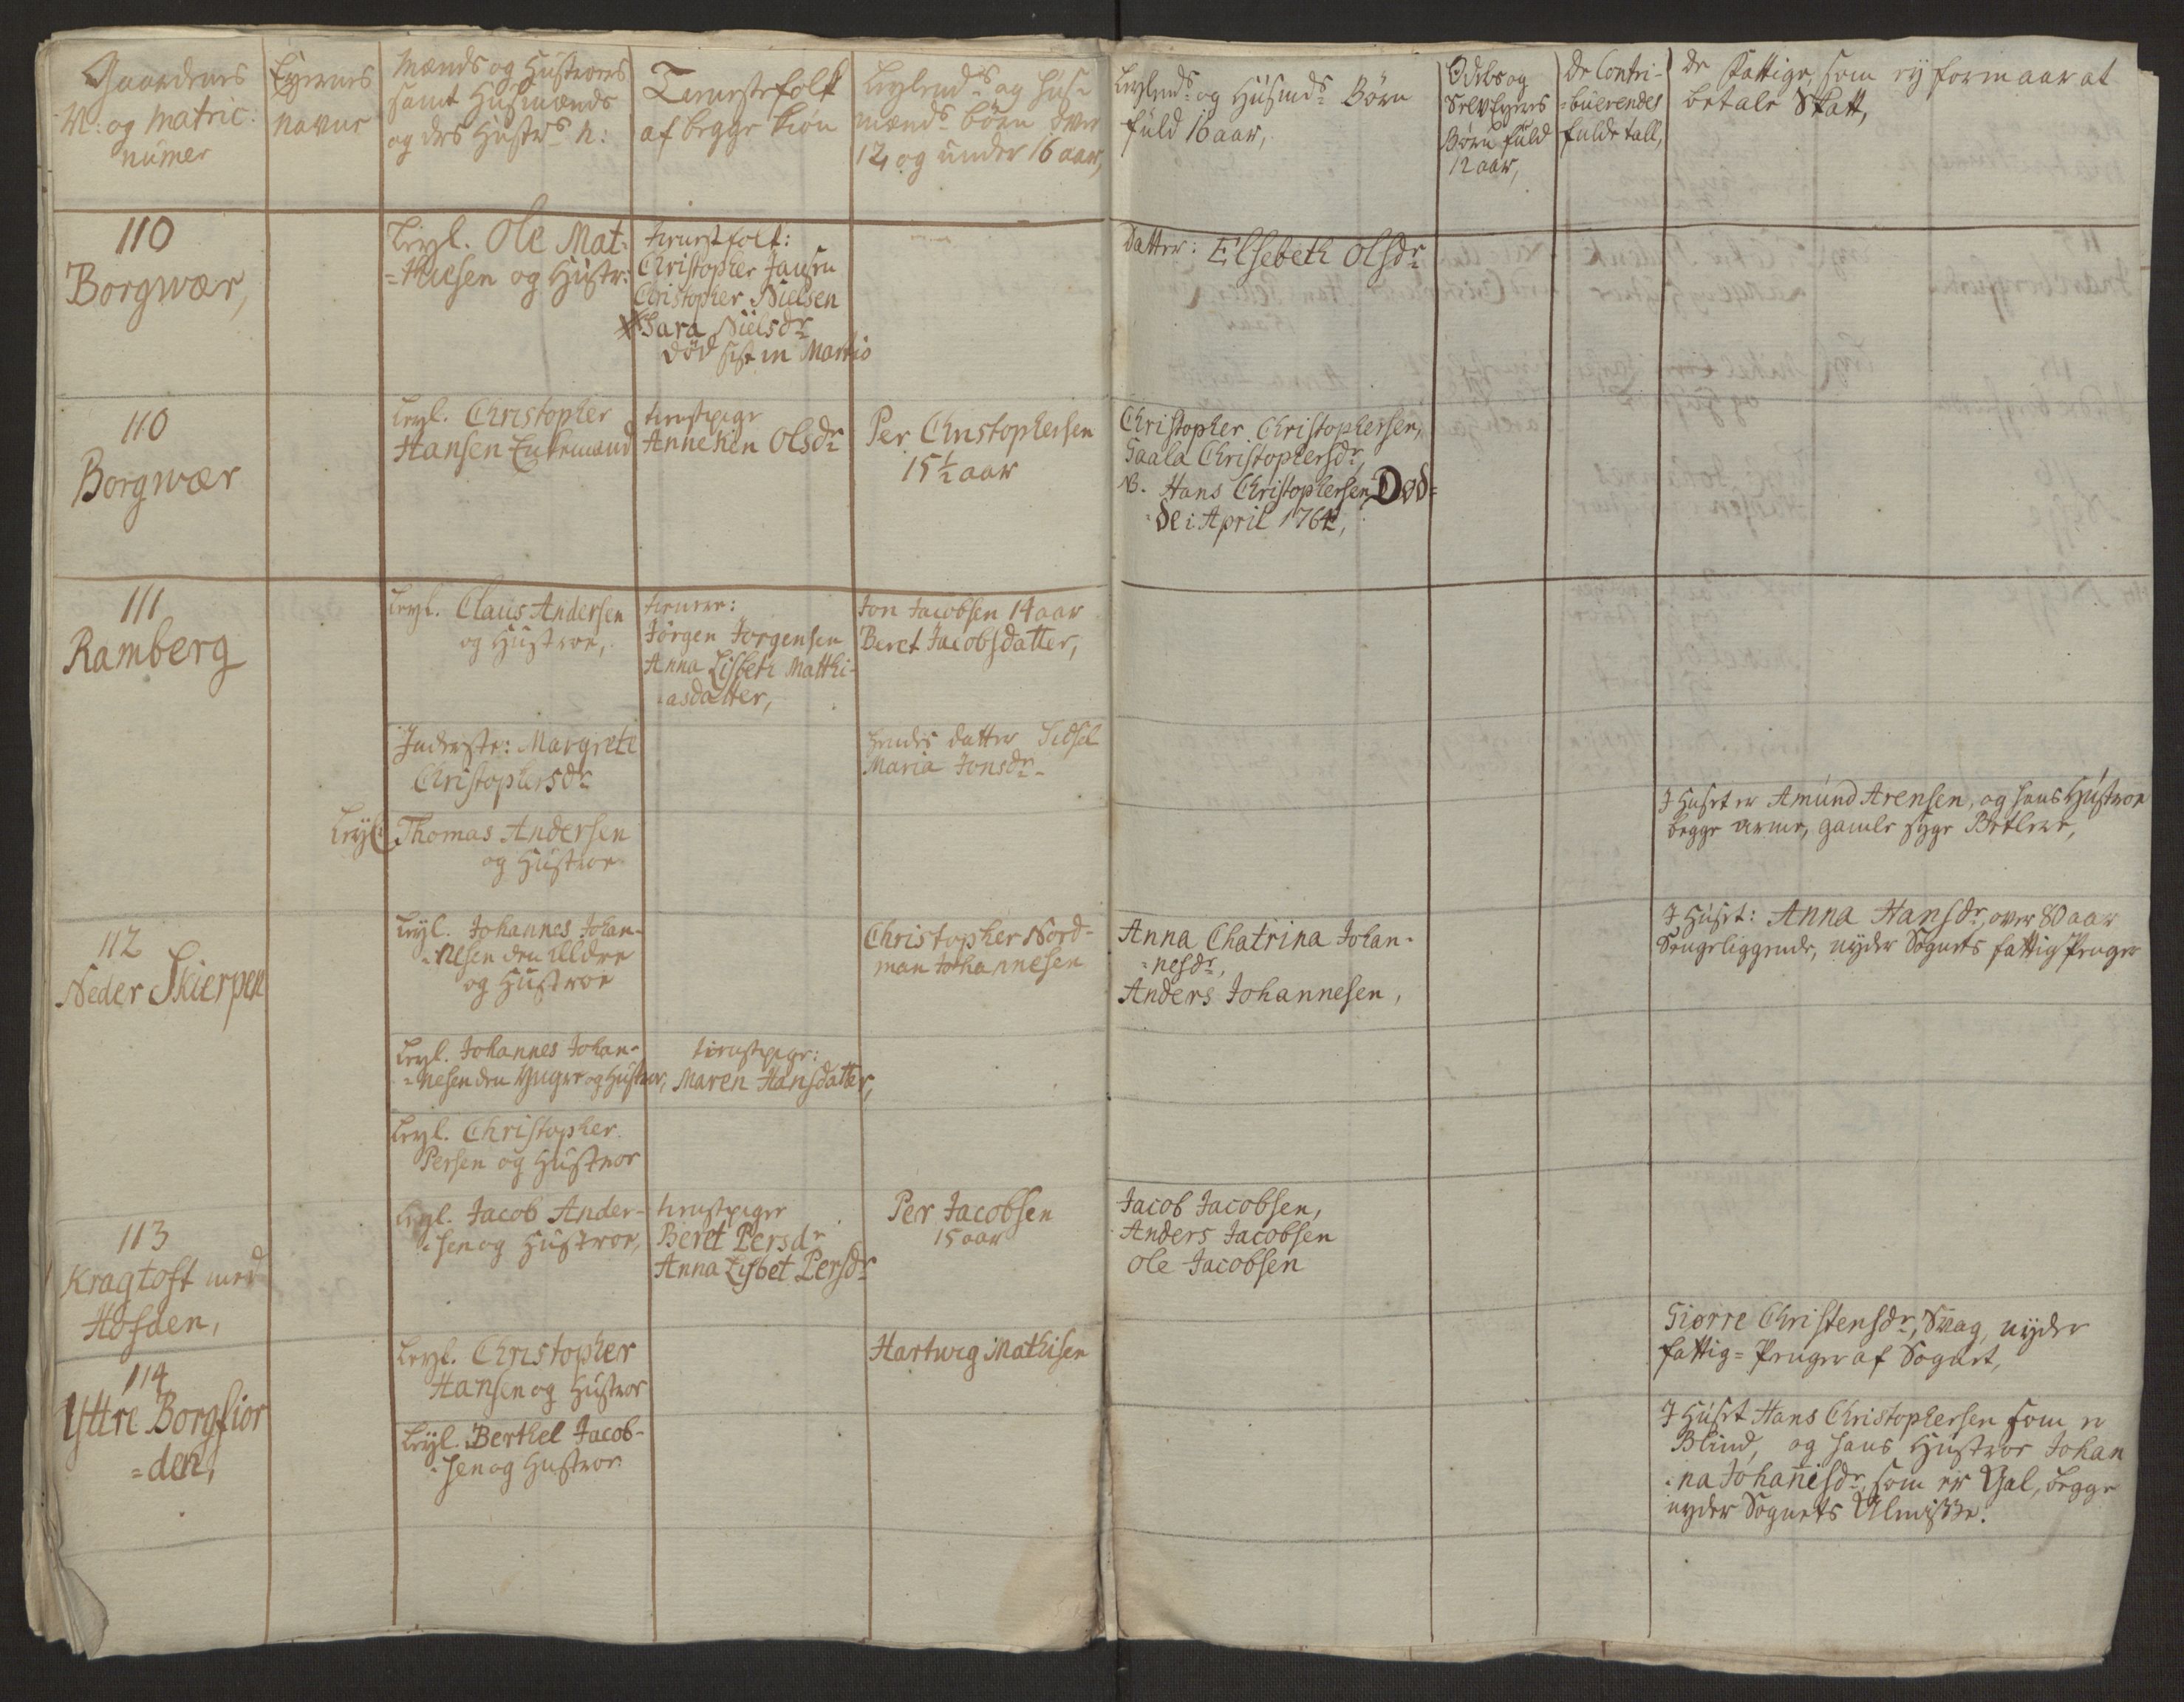 Gaardenes
N: og Matric:
numer
Eyernes
Navne
Mænds og Hustroers
samt Husmænds
og des Hustrs n:
Tienestefolk
af begge kiøn
Leylends og Hus-
mænds børn over
12, og under 16 aar,
Leylends og Husmds Børn
fuld 16 aar,
Odels og
SelvEyeres
Børn fuld
12 aar,
De Contri-
=buerendes
fulde tall,
de Fattige, som ey formaar at
betale Skatt,
110
Borgwær,
Leyl. Ole Mat-
=thiesen og Hustr:
tienestfolk:
Christopher Jansen
Christopher Nielsen
Sara Nielsdr
død sist in Martio
Datter: Elsebeth Olsdr
110
Borgwær
Leyl. Christopher
Hansen Enkemand
tienstpige
Anneken Olsdr
Per Christophersen
15½ aar
Christopher Christophersen,
Gaala Christophersdr,
NB. Hans Christophersen Død-
=de i April 1764,
111
Ramberg
Leyl. Claus Andersen
og Hustroe,
tienere:
Jörgen Jorgensen
Anna Lisbeth Matthi-
asdatter,
Jon Jacobsen 14 aar
Beret Jacobsdatter,
Inderste: Margrete
Christophersdr
hendes datter Sidsel
Maria Jonsdr
Leyl. Thomas Andersen
og Hustroe
I Huset er Amund Arensen, og hans Hustroe
begge arme, gamle syge Betlere,
112
Neder Skierpen
Leyl. Johannes Johan-
=nesen den Ældre
og Hustroe
Christopher Nord-
man Johannesen
Anna Chatrina Johan-
=nesdr,
Anders Johannesen,
I Huset: Anna Hansdr, over 80 aar
Sengeliggende, nyder Sognets fattig Penger
Leyl. Johannes Johan-
=nesen den Yngre og Hustroe,
tienstpige:
Maren Hansdatter,
Leyl. Christopher
Persen og Hustroe
113
Kragtoft med
Hosden,
Leyl. Jacob Ander-
=sen og Hustroe,
tienstpiger
Beret Persdr
Anna Lisbet Persdr
Per Jacobsen
15 aar
Jacob Jacobsen,
Anders Jacobsen
Ole Jacobsen
Giørre Christensdr, Svag, nyder
fattig- Penger af Sognet,
114
Yttre Borgfior
=den,
Leyl. Christopher
Hansen og Hustroe
Hartwig Mathisen
Leyl. Berthel Jacob-
=sen og Hustroe
I Huset Hans Christophersen som er
Blind, og hans Hustroe Johan
=na Johanisdr, som er Gal, begge
nyder Sognets Almisse.